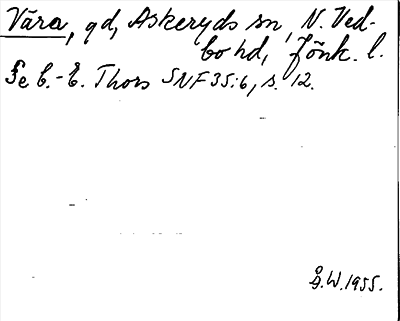 Våra, gd, Askeryds sn, N. Ved-
bo hd, Jönk. l.
Se C.-E. Thors SNF 35:6, s. 12.
Å.W.1955.